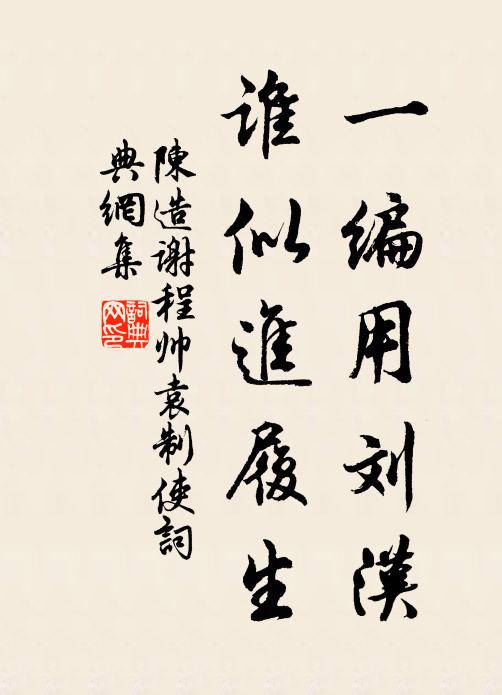 一编用刘漢
谁似進履生
陳造谢程帅袁制使詞
典網集
詞典网印